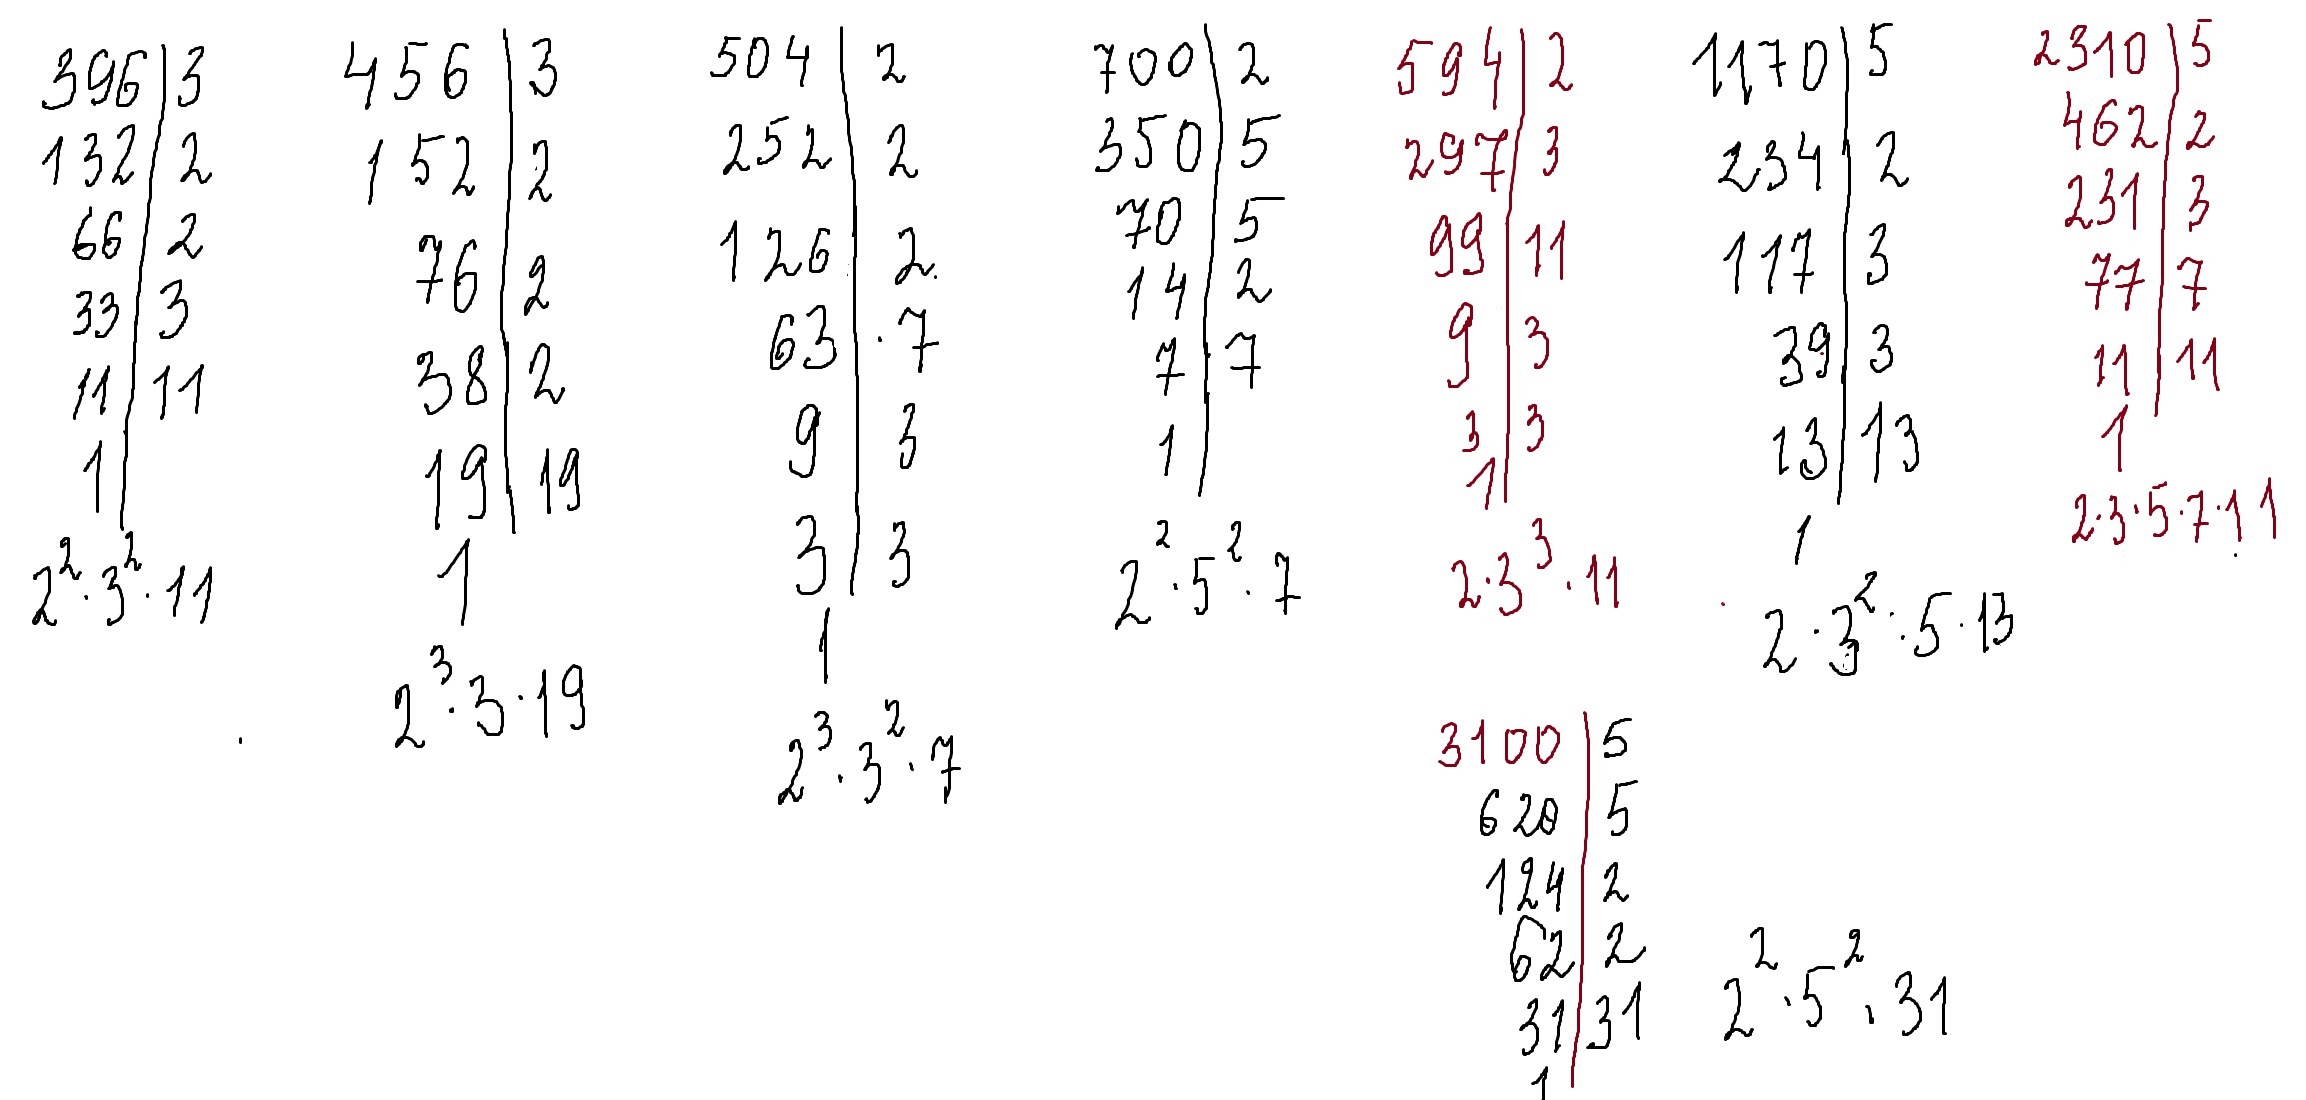 396|3
132|2
66|2
33|3
11|11
1|
2²·3²·11
456|3
152|2
76|2
38|2
19|19
1
2³·3·19
504|2
252|2
126|2.
63|·7
9|3
3|3
1
2³·3²·7
700|2
350|5
70|5
14|2
7|7
1|
2²·5²·7
594|2
297|3
99|11
9|3
3|3
1|
2·3³·11
1170|5
234|2
117|3
39|3
13|13
1
2·3²·5·13
2310|5
462|2
231|3
77|7
11|11
1
2·3·5·7·11
3100|5
620|5
124|2
62|2
31|31
1|
2²·5²·31